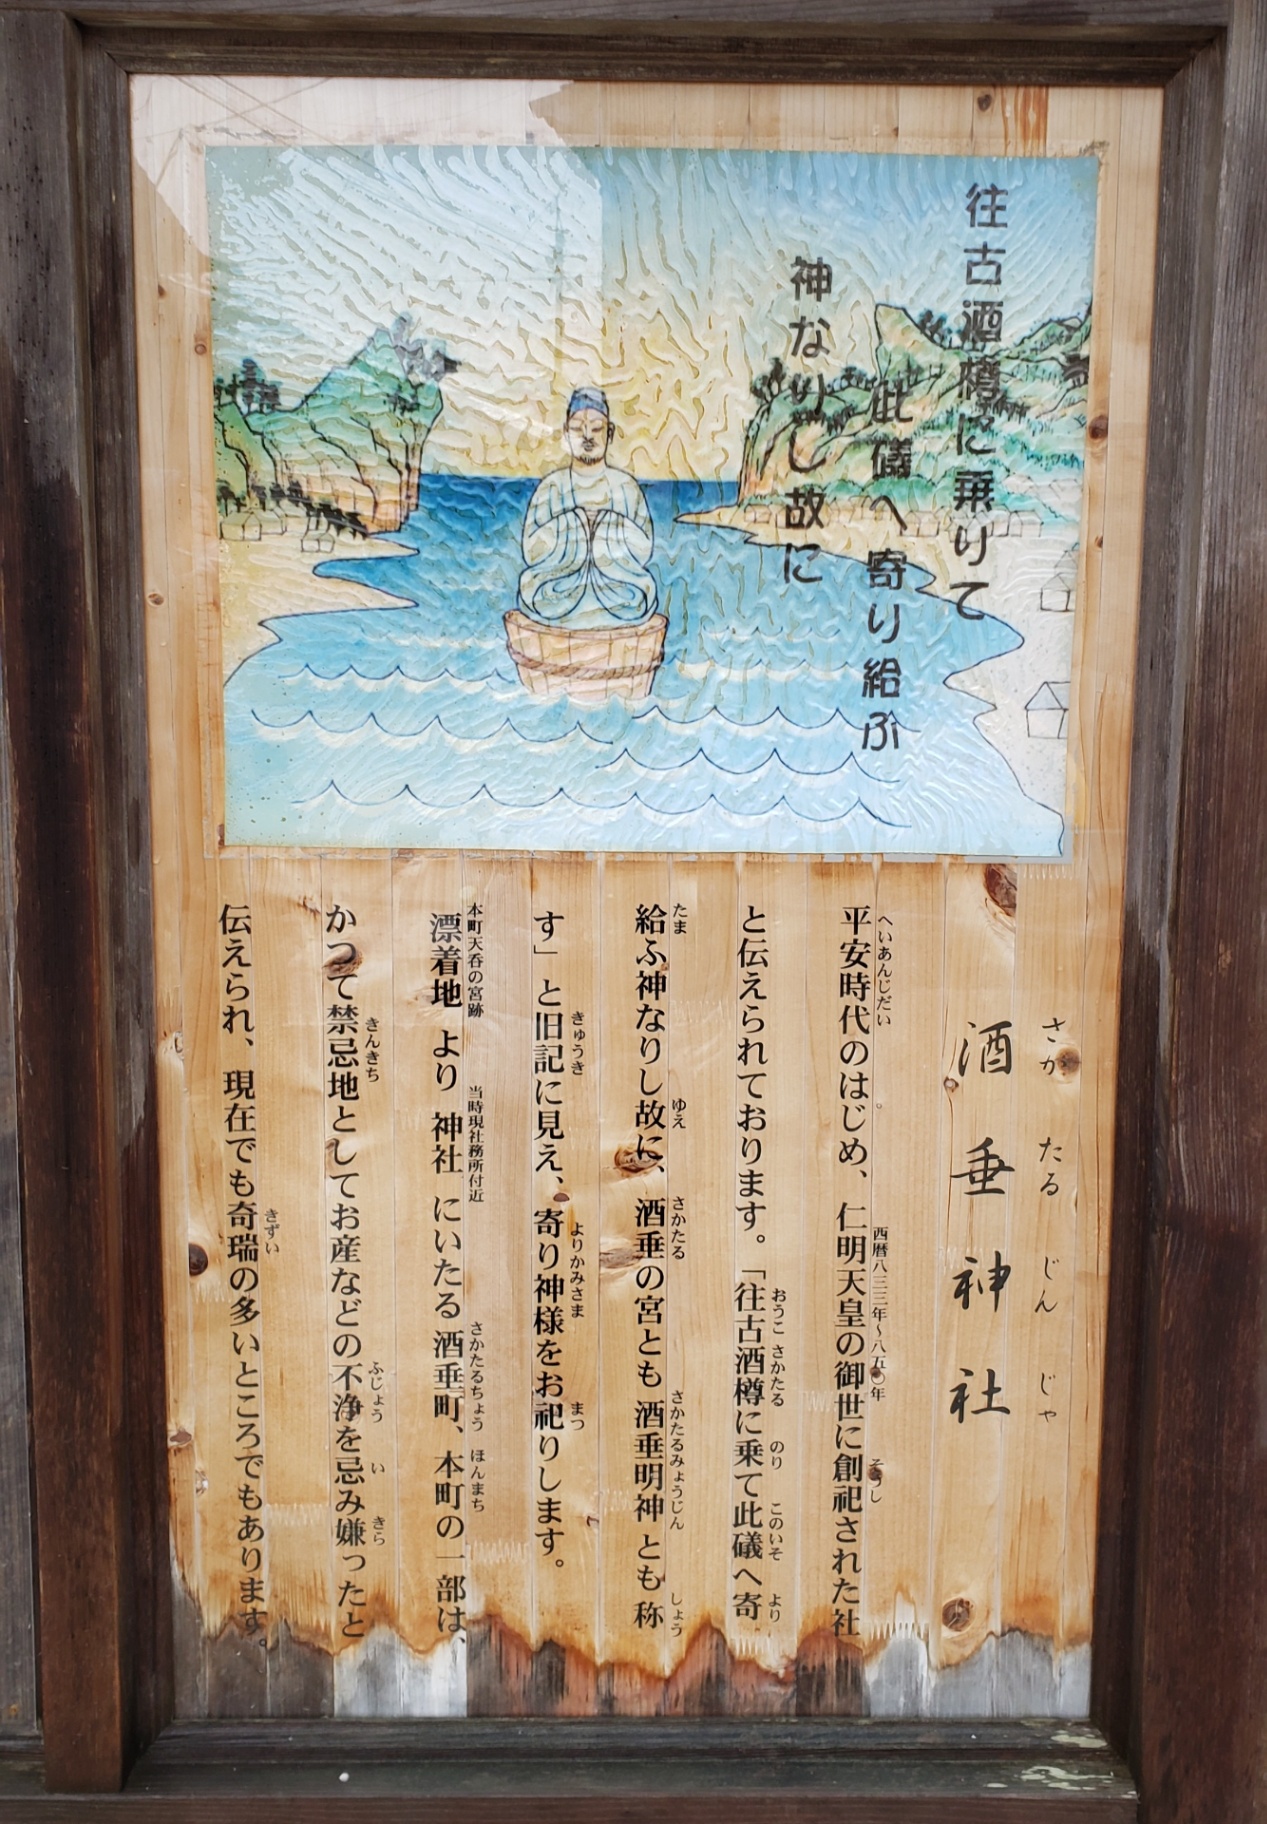 往古酒樽に乗りて
此礒へ寄り給ふ
神なりし故に
さか たる じん じゃ
酒垂神社
へいあんじだい
西暦八三三年～八五〇年
そうし
平安時代のはじめ、仁明天皇の御世に創祀された社
おうこ さかたる のり このいそ より
と伝えられております。「往古酒樽に乗て此礒へ寄
たま ゆえ さかたる さかたるみょうじん しょう
給ふ神なりし故に、酒垂の宮とも酒垂明神とも称
きゅうき よりかみさま まつ
す」と旧記に見え、寄り神様をお祀りします。
本町天呑の宮跡 当時現社務所付近 さかたるちょう ほんまち
漂着地より神社にいたる酒垂町、本町の一部は、
きんきち ふじょう い きら
かつて禁忌地としてお産などの不浄を忌み嫌ったと
きずい
伝えられ、現在でも奇瑞の多いところでもあります。